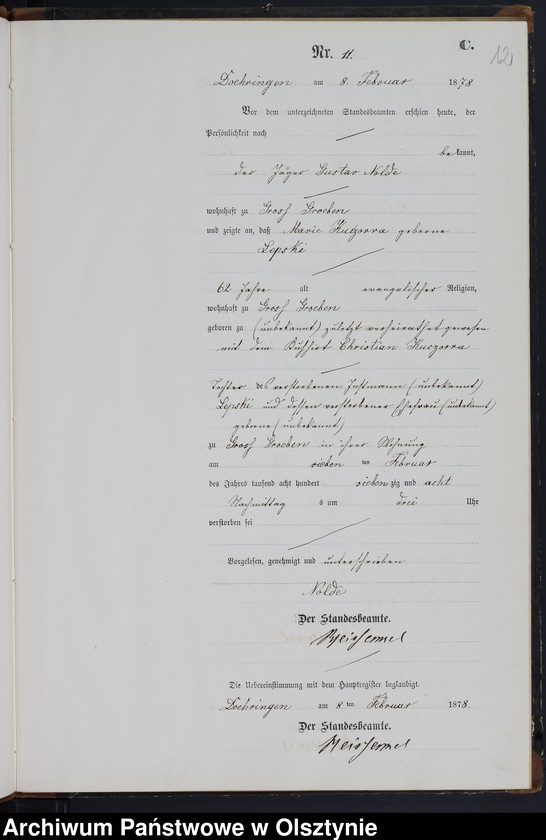 C.
12
Nr. 11.
Doehringen am 8. Februar 1878
Vor dem unterzeichneten Standesbeamten erschien heute, der
Persönlichkeit nach
bekannt,
der Jäger Gustav Nolde
wohnhaft zu Gross Groeben
und zeigte an, daß Marie Kuczorra geborne
Lepski
62 Jahre alt evangelischer Religion,
wohnhaft zu Gross Groeben
geboren zu (unbekannt) zuletzt verheirathet gewesen
mit dem Christian Kuczorra
Tochter des verstorbenen Instmann (unbekannt)
Lepski und dessen verstorbener Ehefrau (unbekannt)
geborne (unbekannt)
zu Gross Groeben in ihrer Wohnung
am sieben ten Februar
des Jahres tausend acht hundert siebenzig und acht
Nachmittags um drei Uhr
verstorben sei
Vorgelesen, genehmigt und unterschrieben
Nolde
Der Standesbeamte.
Die Uebereinstimmung mit dem Hauptregister beglaubigt.
Doehringen am 8 ten Februar 1878.
Der Standesbeamte.
Archiwum Państwowe w Olsztynie